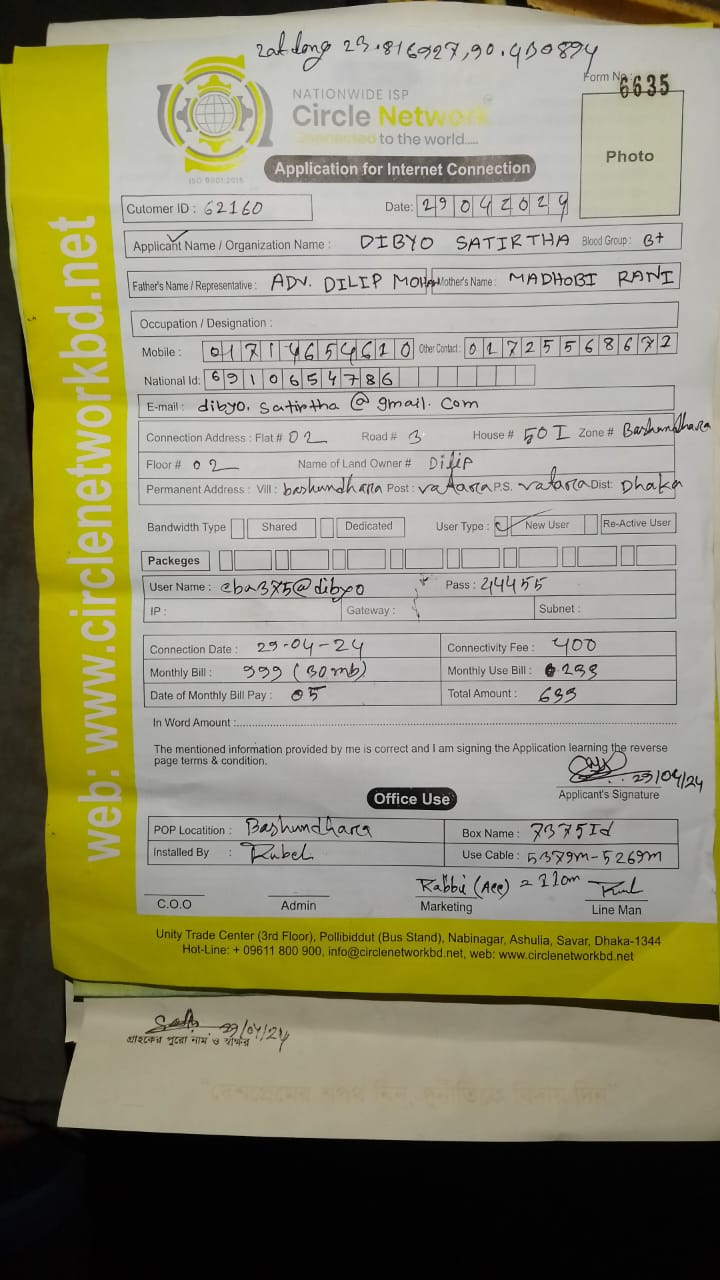 Latlong 23.816927,90.430894
Form No: 6635
NATIONWIDE ISP
Circle Network
Connected to the world.....
ISO 9001:2015
Application for Internet Connection
Photo
Cutomer ID : 62160
Date: 29042024
Applicant Name / Organization Name : DIBYO SATIRTHA Blood Group : B+
Father's Name / Representative : ADV. DILIP MOHAN Mother's Name : MADHOBI RANI
Occupation / Designation :
Mobile : 01714654610 Other Contact : 01725568672
National Id: 6910654786
E-mail : dibyo.satirtha@gmail.com
Connection Address : Flat # 02 Road # 3 House # 50 I Zone # Bashundhara
Floor # 02 Name of Land Owner # Dilip
Permanent Address : Vill : bashundhara Post : vatara P.S. vatara Dist: Dhaka
Bandwidth Type Shared Dedicated User Type : New User Re-Active User
Packeges
User Name : cba375@dibyo Pass : 44455
IP : Gateway : Subnet :
Connection Date : 29-04-24 Connectivity Fee : 400
Monthly Bill : 999 (30mb) Monthly Use Bill : 299
Date of Monthly Bill Pay : 05 Total Amount : 699
In Word Amount :
The mentioned information provided by me is correct and I am signing the Application learning the reverse
page terms & condition.
29/04/24
Applicant's Signature
Office Use
POP Locatition : Bashundhara Box Name : 7375Id
Installed By : Rubel Use Cable : 5379m-5269m
Rabbi (Ace) = 110m
C.O.O Admin Marketing Line Man
Unity Trade Center (3rd Floor), Pollibiddut (Bus Stand), Nabinagar, Ashulia, Savar, Dhaka-1344
Hot-Line: + 09611 800 900, info@circlenetworkbd.net, web: www.circlenetworkbd.net
web: www.circlenetworkbd.net
29/04/24
গ্রাহকের পুরো নাম ও স্বাক্ষর
"দেশপ্রেমের শপথ নিন, দুর্নীতিকে বিদায় দিন"